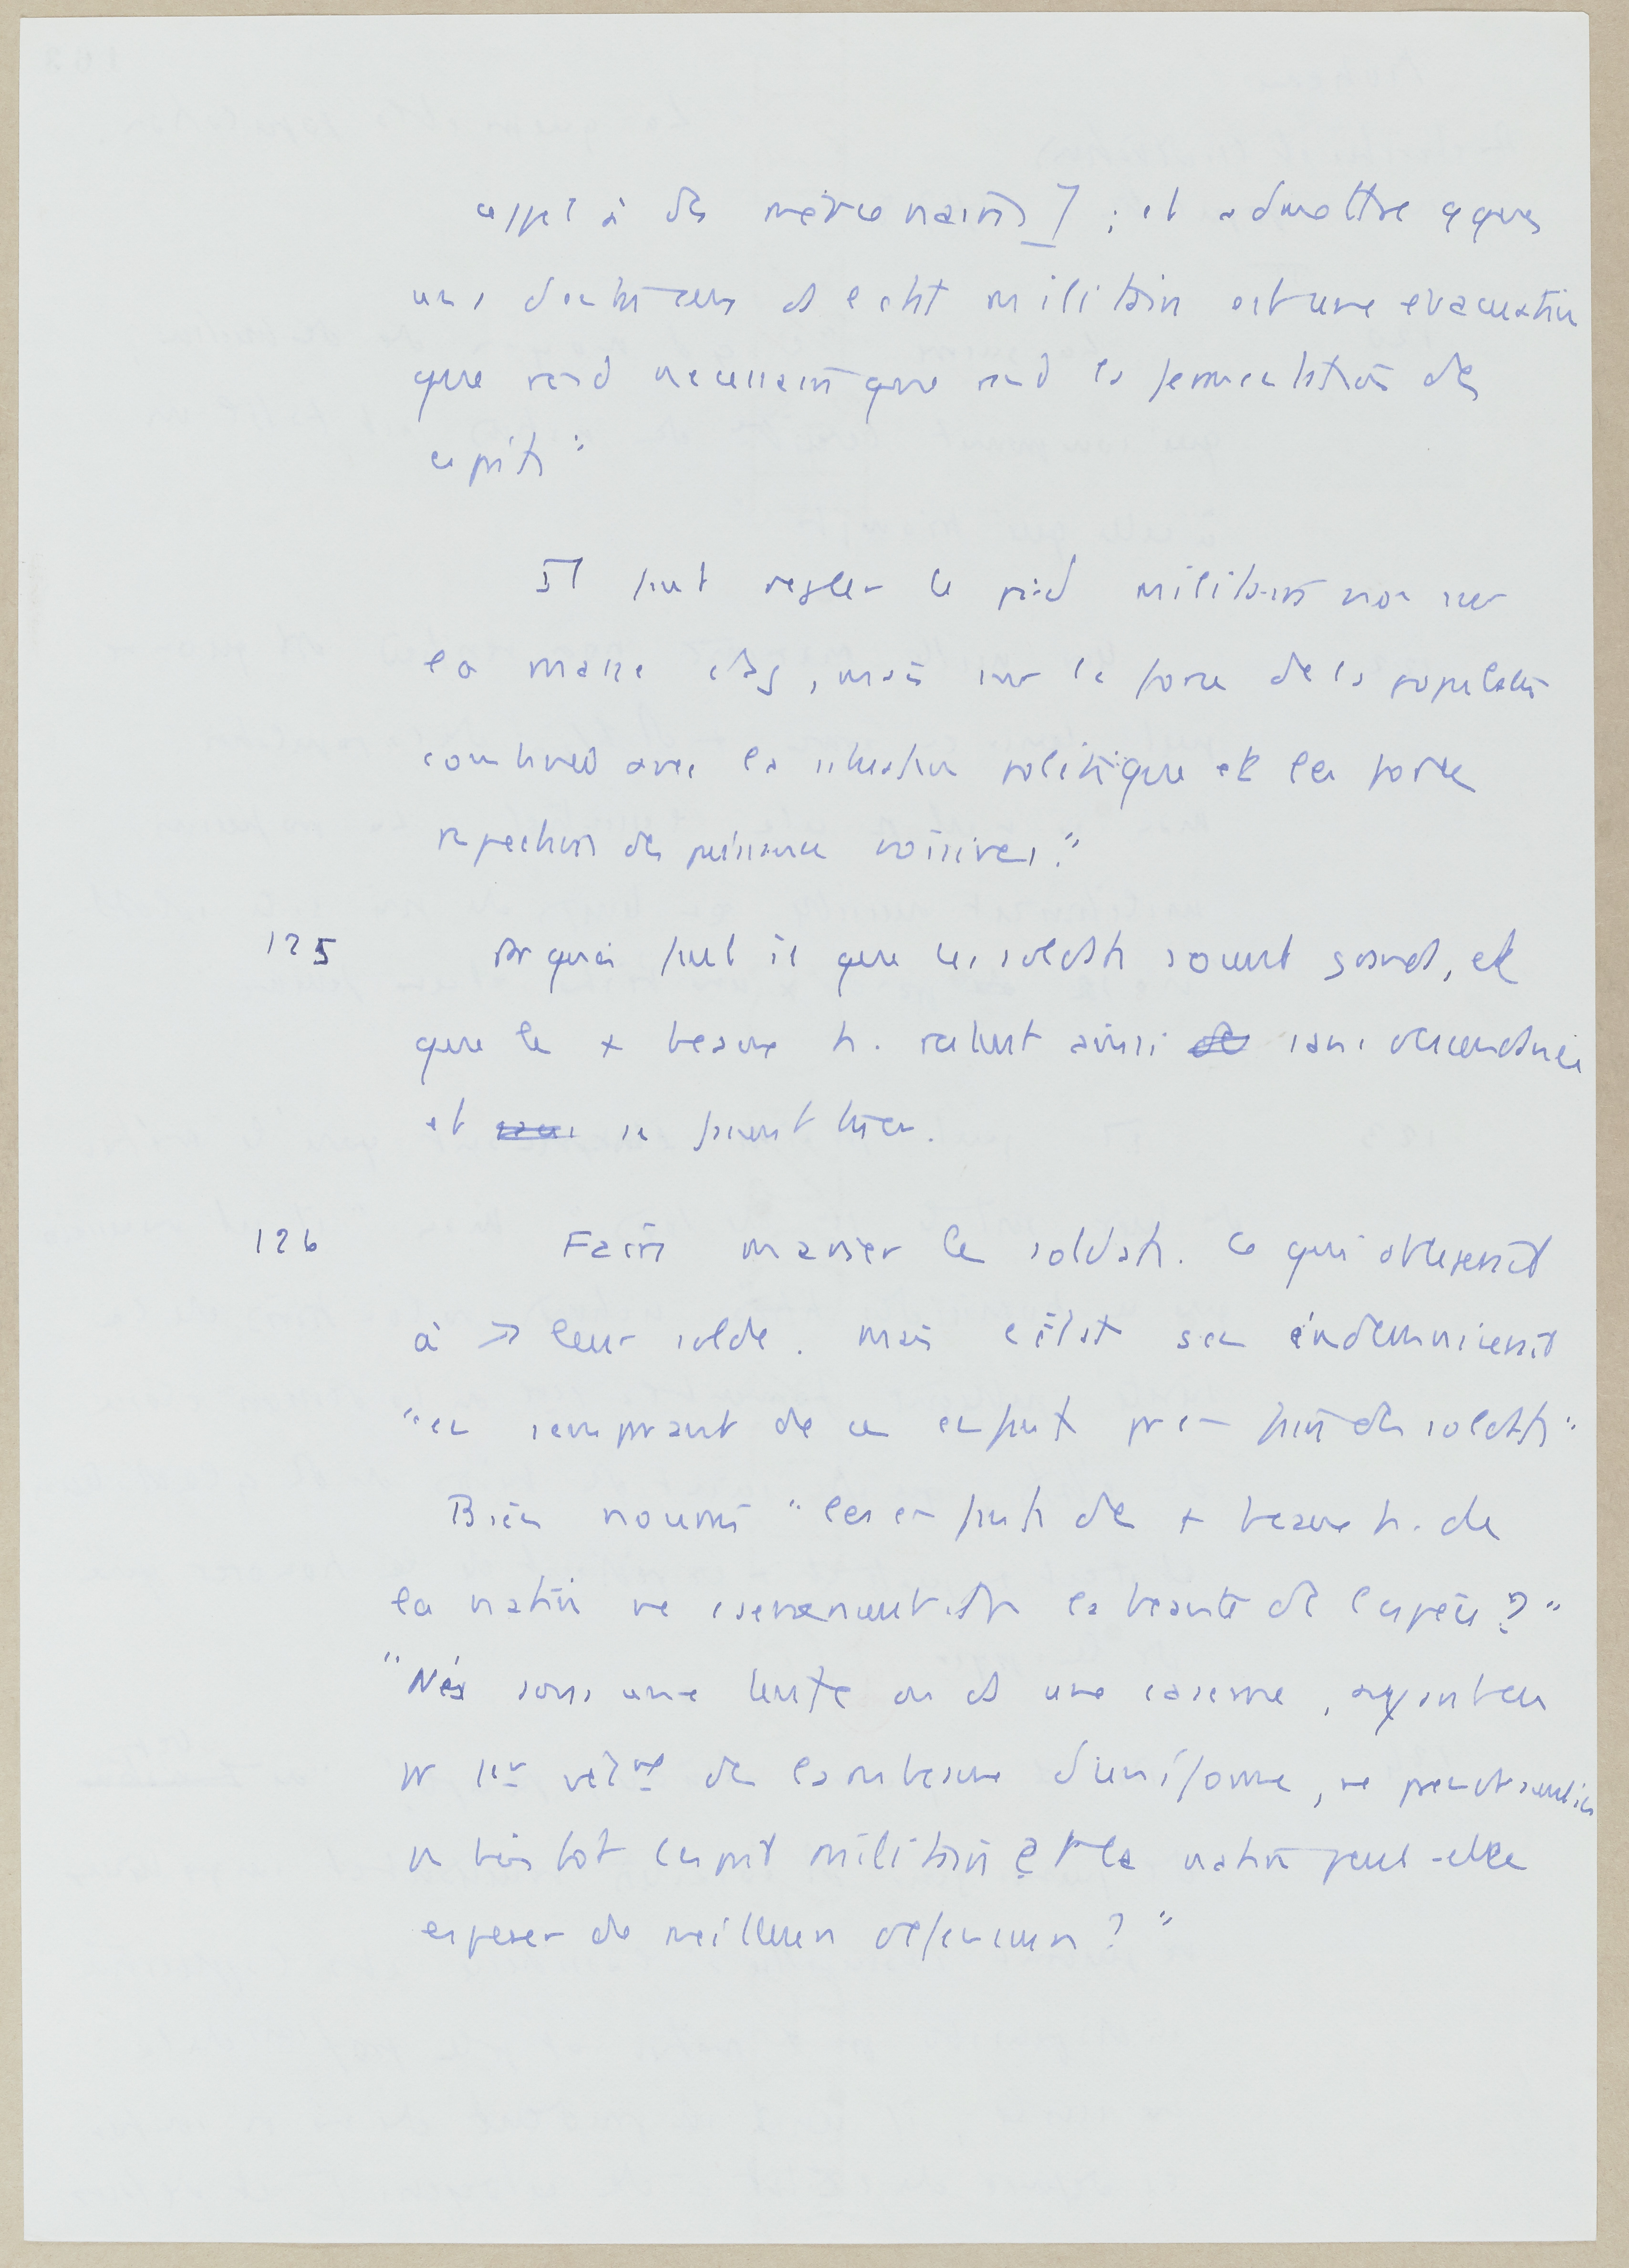 appel à des mercenaires] ; et admettre qques
uns d'entre eux ds l'état militaire est une évacuation
que rend nécessaire que rend la fermentation des
esprits"
Il faut régler le pied militaire non sur
la masse , mais sur la force de la population
combinée avec la situation politique et les forces
respectives des puissances voisines."
125 Pr quoi faut il que les soldats soient grands, et
que les + beaux h. restent ainsi sans descendance
et se fassent tuer.
126 Faire marier les soldats. Ce qui obligerait
à ↗ leur solde. Mais l'état s'en indemniserait
"en s'emparant de ces enfants pr en faire des soldats"
Bien nourris "les enfants des + beaux h. de
la nation ne conserveraient-ils pas la beauté de l'espèce ?"
"Nés sous une tente ou ds une caserne,
pr 1er vêtmt des lambeaux d'uniforme, ne prendraient-ils
pas bientôt l'esprit militaire et la nation peut-elle
espérer de meilleurs défenseurs ?"